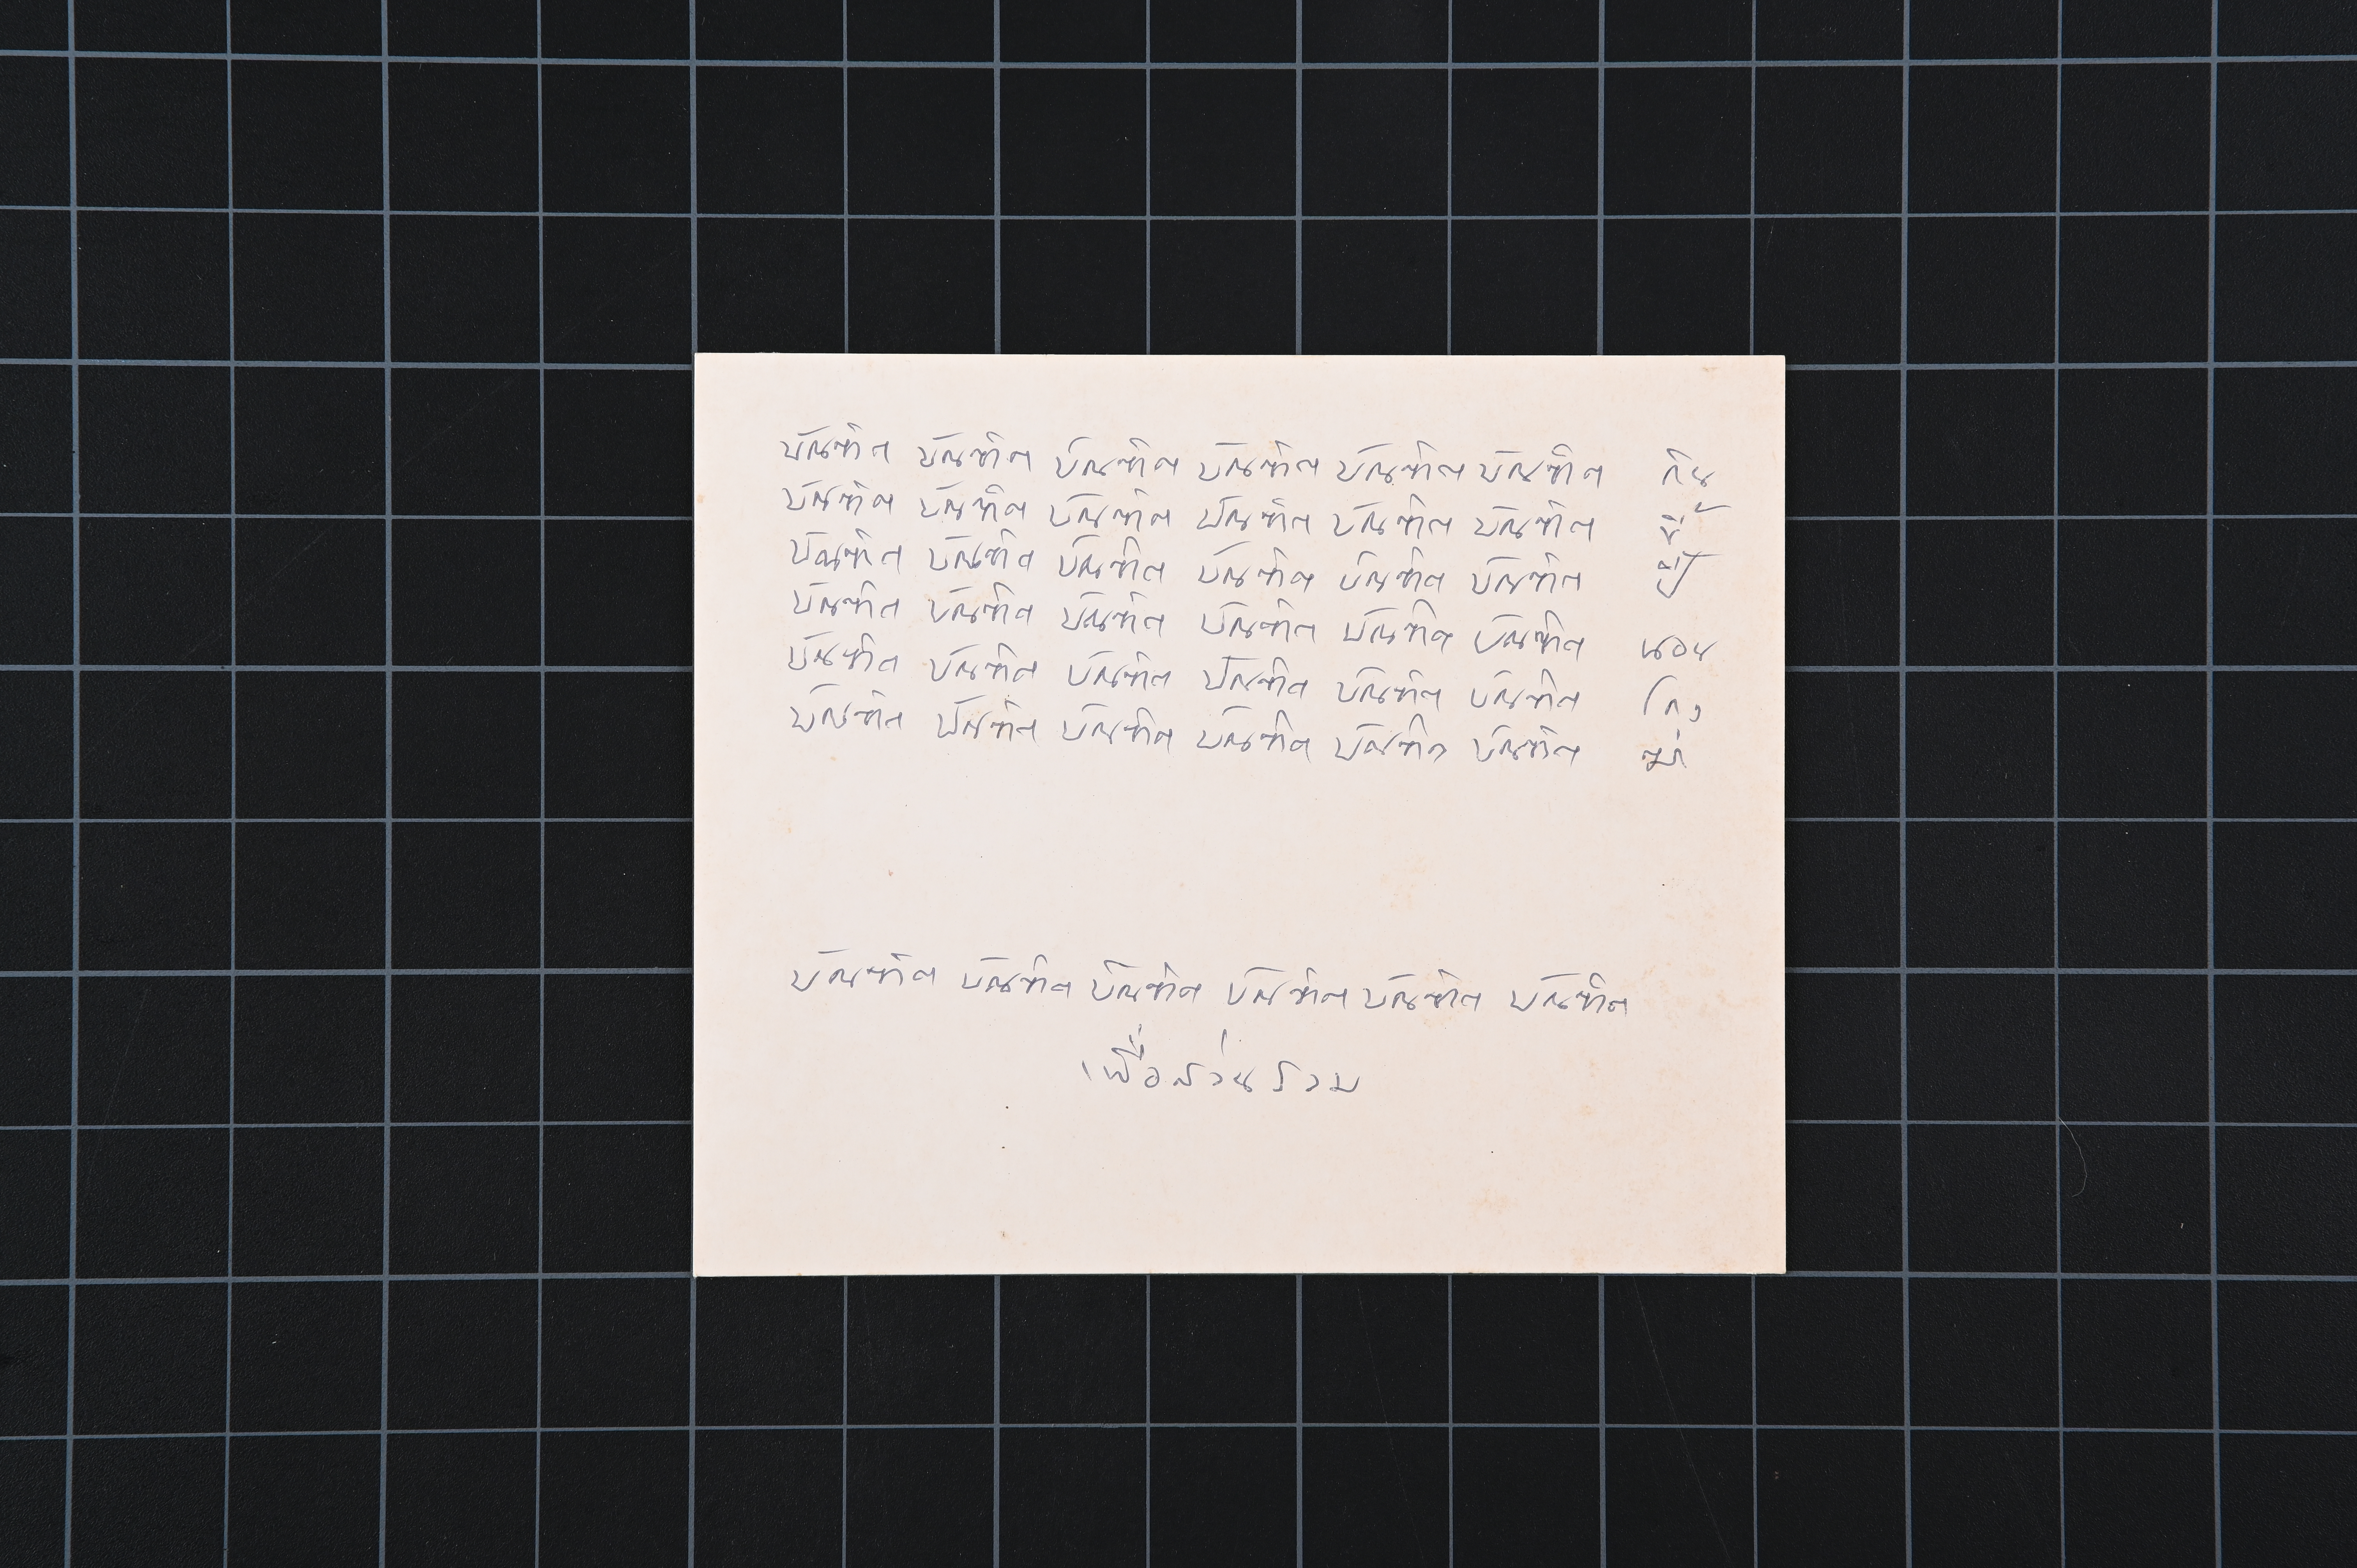 บัณฑิต บัณฑิต บัณฑิต บัณฑิต บัณฑิต บัณฑิต กิน
บัณฑิต บัณฑิต บัณฑิต บัณฑิต บัณฑิต บัณฑิต ขี้
บัณฑิต บัณฑิต บัณฑิต บัณฑิต บัณฑิต บัณฑิต ปี้
บัณฑิต บัณฑิต บัณฑิต บัณฑิต บัณฑิต บัณฑิต นอน
บัณฑิต บัณฑิต บัณฑิต บัณฑิต บัณฑิต บัณฑิต โกง
บัณฑิต บัณฑิต บัณฑิต บัณฑิต บัณฑิต บัณฑิต ฆ่า
บัณฑิต บัณฑิต บัณฑิต บัณฑิต บัณฑิต บัณฑิต
เพื่อส่วนรวม